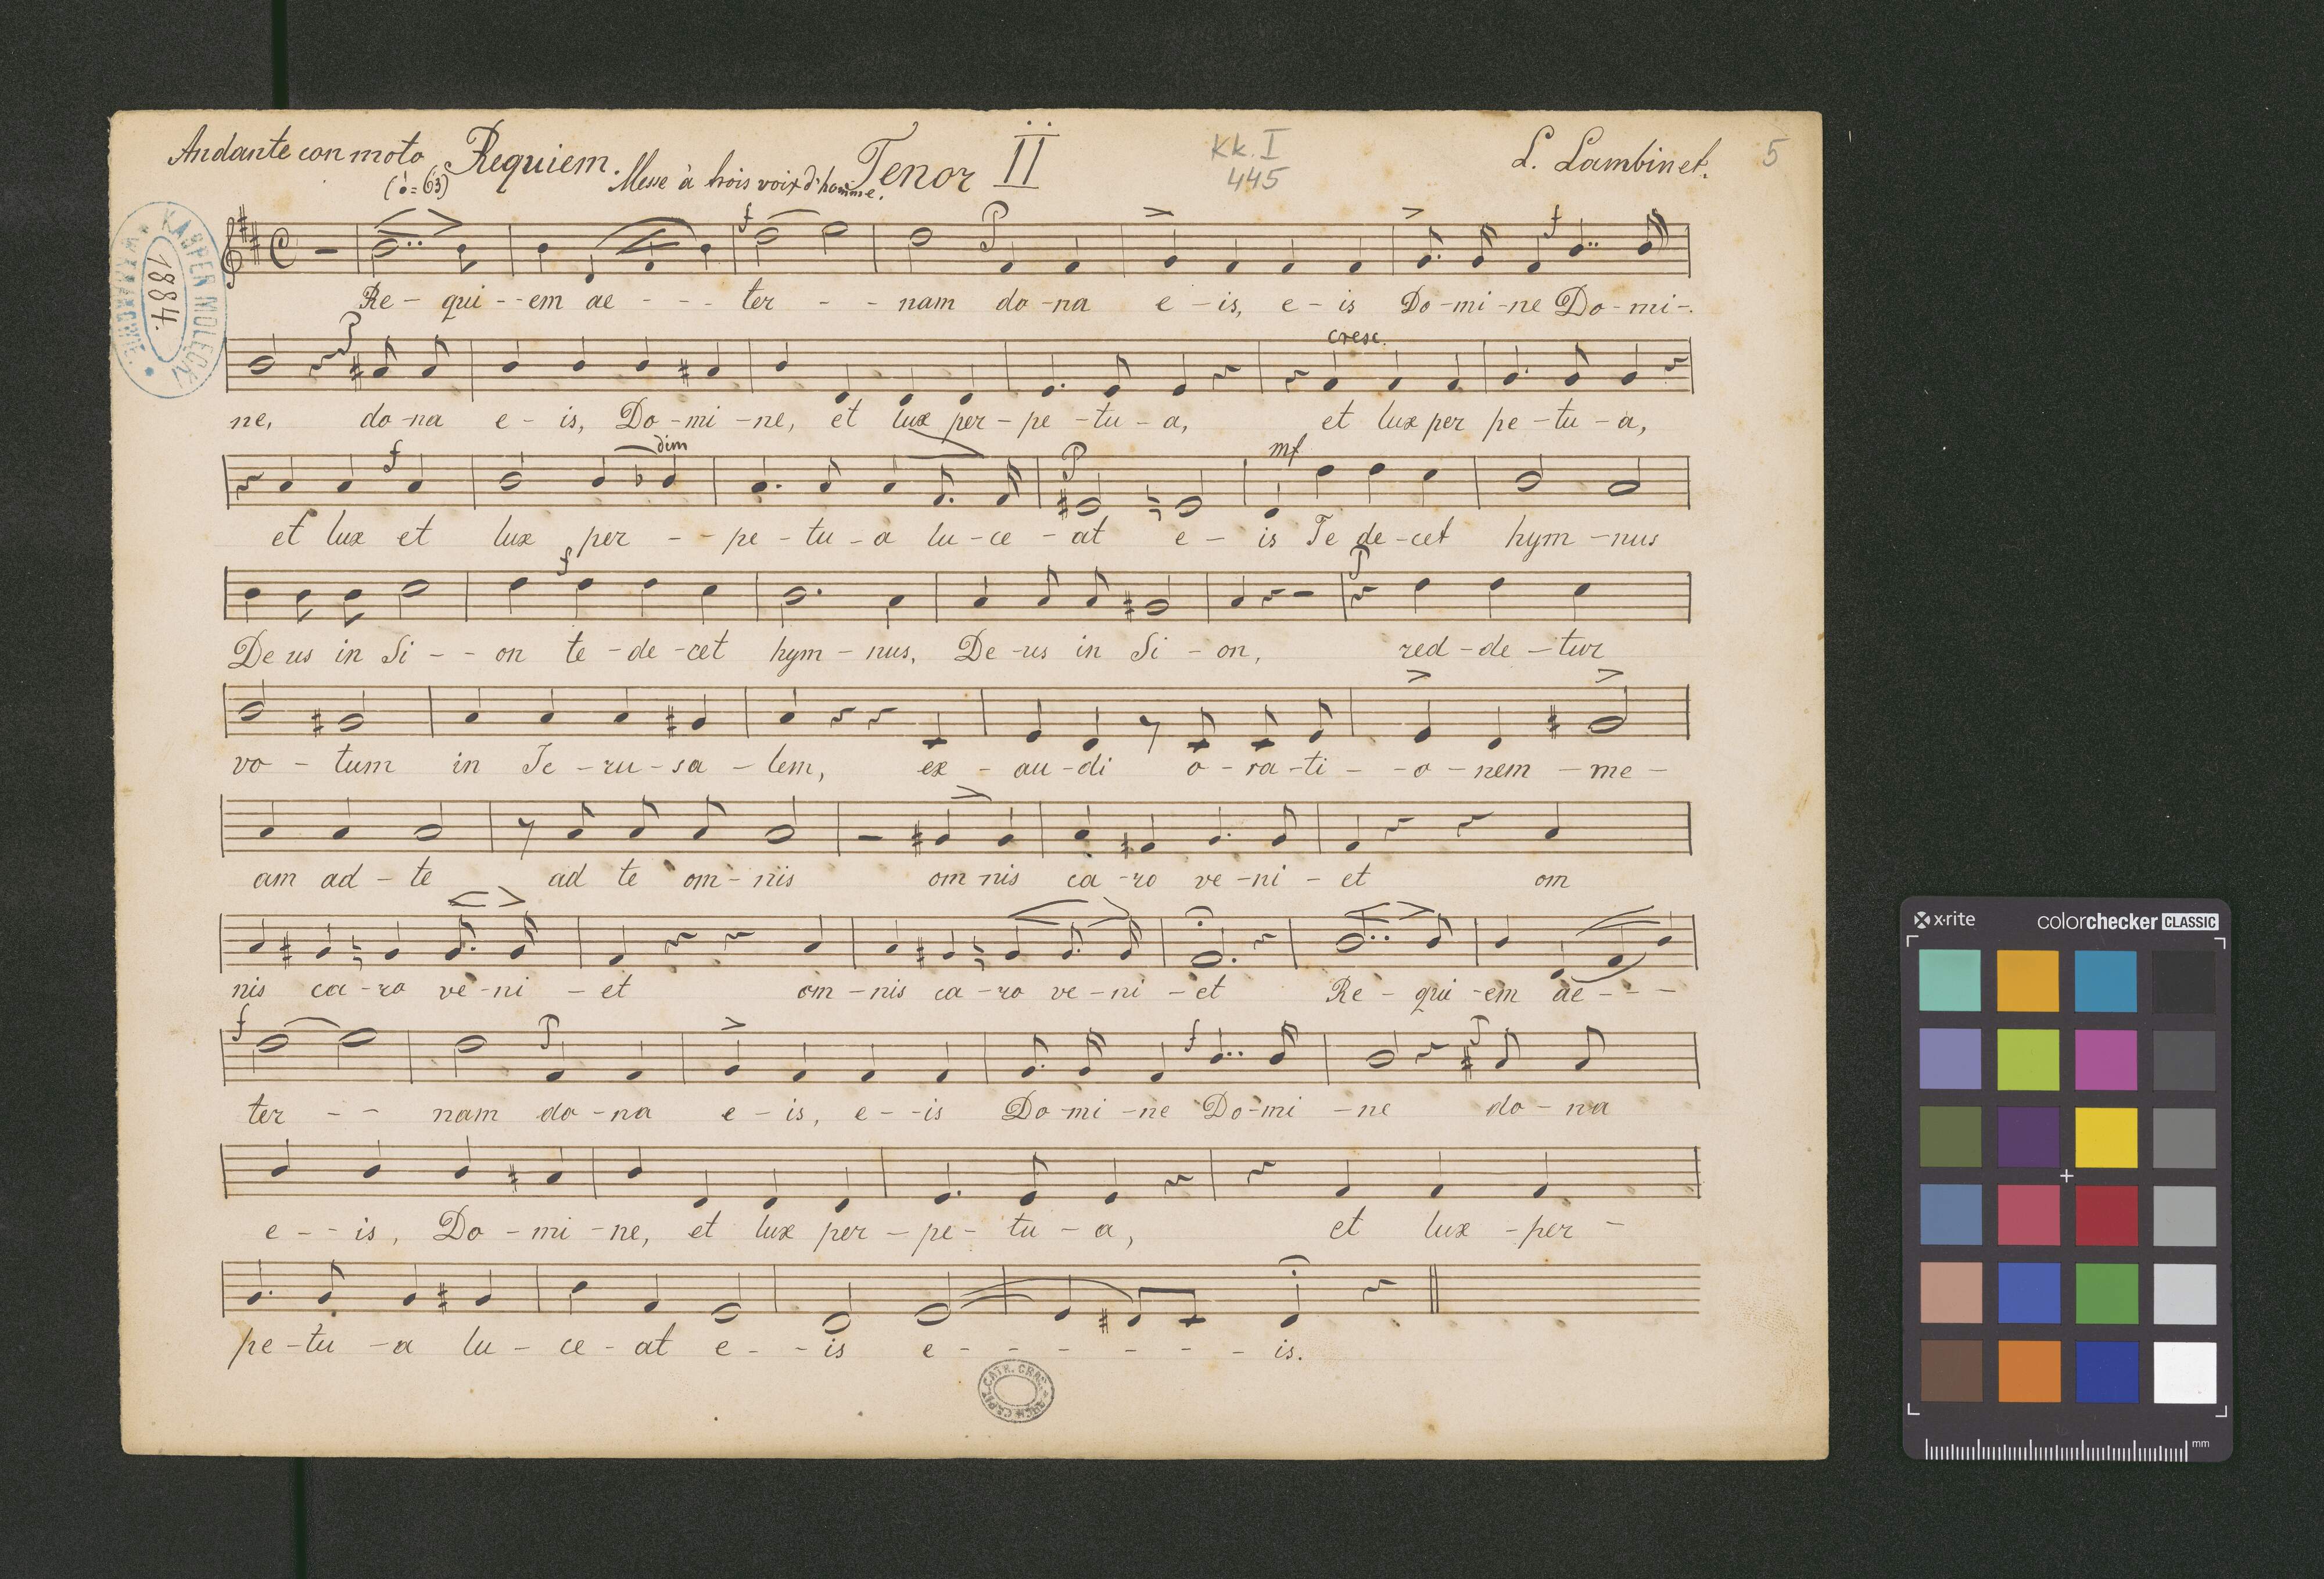 Andante con moto Requiem. Messe à trois voix d'homme. Tenor II Kk. I 445 L. Lambinet. 5
( = 63)
KASPER MOLĘCKI
1884.
f f
Re - qui - - em ae - - - ter - - nam do - na e - is, e - is Do - mi - ne Do - mi -
cresc.
ne, do - na e - is, Do - mi - ne, et lux per - pe - tu - a, et lux per pe - tu - a,
f dim p mf
et lux et lux per - - pe - tu - a lu - ce - at e - is Te de - cet hym - nus
f p
De us in Si - - on te - de - cet hym - nus, De - us in Si - on, red - de - tur
vo - tum in Je - ru - sa - lem, ex - au - di o - ra - ti - - o - nem - me -
am ad - te ad te om - nis om nis ca - ro ve - ni - et om
nis ca - ro ve - ni - et om - nis ca - ro ve - ni - et Re - qui - em ae - - -
f p f p
ter - - nam do - na e - is, e - - is Do - mi - ne Do - mi - ne do - na
e - - is, Do - mi - ne, et lux per - pe - tu - a, et lux - per -
pe - tu - a lu - ce - at e - - is e - - - - - - is.
x·rite colorchecker CLASSIC
mm